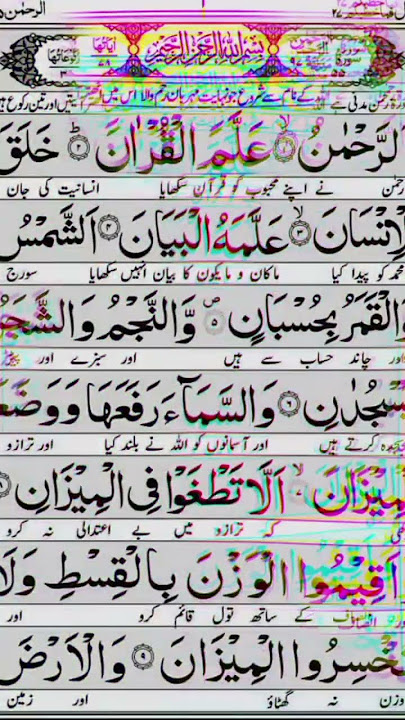 الرحمٰن ۵۵
بِسْمِ اللهِ الرَّحْمٰنِ الرَّحِيْمِ
اٰیاتها
رکوعاتها ۳
سورة
کے نام سے شروع جو نہایت مہربان رحم والا اس میں
اَلرَّحْمٰنُ ۱ عَلَّمَ الْقُرْاٰنَ ۲ خَلَقَ
رحمٰن نے اپنے محبوب کو قرآن سکھایا انسانیت کی جان
الْاِنْسَانَ ۳ عَلَّمَهُ الْبَيَانَ ۴ اَلشَّمْسُ
محمد کو پیدا کیا ماکان و مایکون کا بیان انہیں سکھایا سورج
وَالْقَمَرُ بِحُسْبَانٍ ۵ وَّالنَّجْمُ وَالشَّجَرُ
اور چاند حساب سے ہیں اور سبزے اور پیڑ
يَسْجُدٰنِ ۶ وَالسَّمَآءَ رَفَعَهَا وَوَضَعَ
سجدہ کرتے ہیں اور آسمانوں کو اللہ نے بلند کیا اور ترازو
الْمِيْزَانَ اَلَّا تَطْغَوْا فِی الْمِيْزَانِ
کہ ترازو میں بے اعتدالی نہ کرو
اَقِيْمُوا الْوَزْنَ بِالْقِسْطِ وَلَا
اور انصاف کے ساتھ تول قائم کرو اور
تُخْسِرُوا الْمِيْزَانَ ۹ وَالْاَرْضَ
وزن نہ گھٹاؤ اور زمین